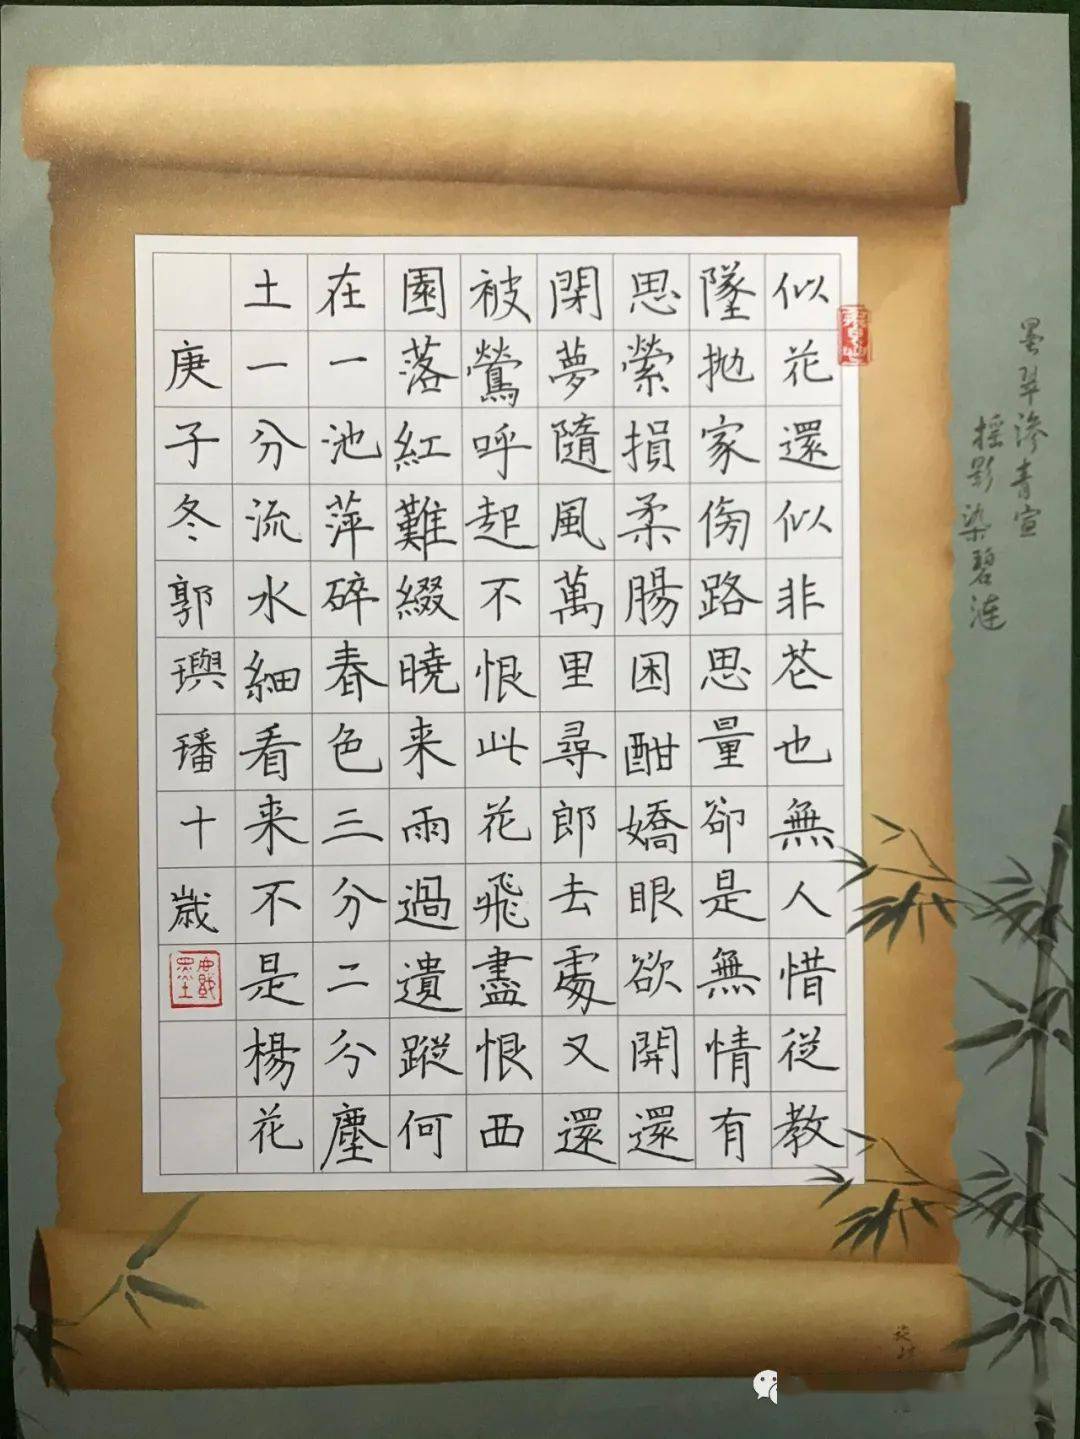 墨翠滲青宣
搖影染碧漣
似花還似非芲也無人惜從教
墜抛家傍路思量卻是無情有
思縈損柔腸困酣嬌眼欲開還
閉夢隨風萬里尋郎去處又還
被鶯呼起不恨此花飛盡恨西
園落紅難綴曉来雨過遺蹤何
在一池萍碎春色三分二分塵
土一分流水細看来不是楊花
庚子冬郭璵璠十歲